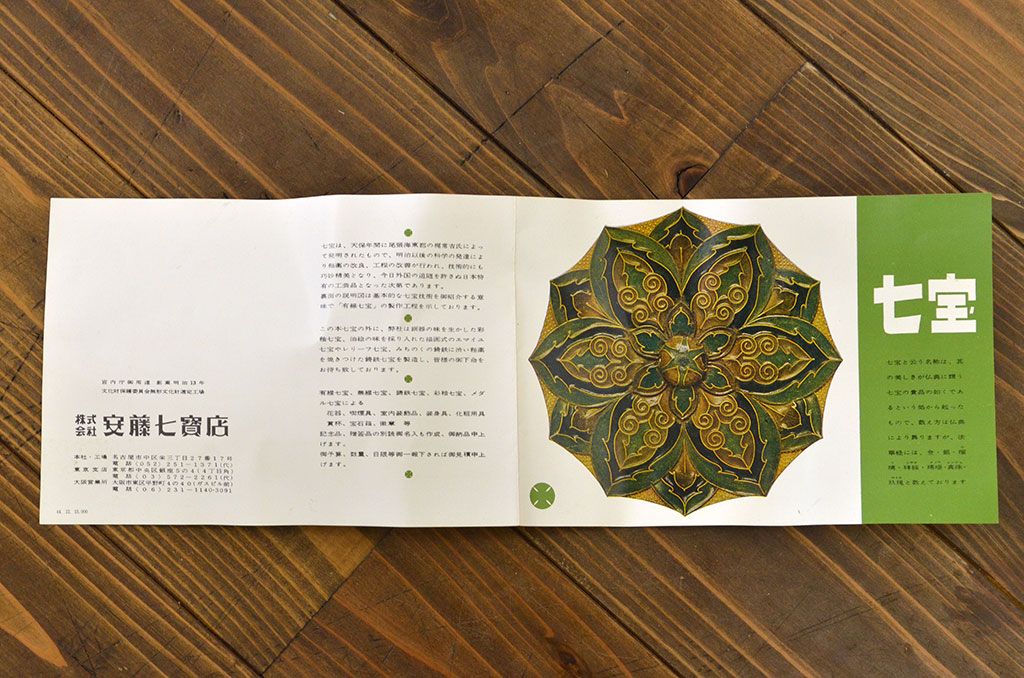 七宝
七宝と云う名称は、其
の美しさが仏典に謂う
七宝の貴品の如くであ
るという処から起った
もので、数え方は仏典
により異りますが、法
華経には、金・銀・瑠
璃・硨磲・瑪瑙・真珠・
玖瑰と数えております
七宝は、天保年間に尾張海東郡の梶常吉氏によっ
て発明されたもので、明治以後の科学の発達によ
り釉薬の改良、工程の改善が行われ、技術的にも
巧砂精美となり、今日外国の追随を許さぬ日本特
有の工芸品となった次第であります。
裏面の説明図は基本的な七宝技術を御紹介する意
味で「有線七宝」の製作工程を示しております。
この本七宝の外に、弊社は銅器の味を生かした彩
釉七宝、油絵の味を採り入れた描画式のエマイユ
七宝やレリーフ七宝、みちのくの鋳鉄に渋い釉薬
を焼きつけた鋳鉄七宝を製造し、皆様の御下命を
お待ち致しております。
有線七宝、無線七宝、鋳鉄七宝、彩釉七宝、メダ
ル七宝による
花器、喫煙具、室内装飾品、装身具、化粧用具
賞杯、宝石箱、徽章 等
記念品、贈答品の別誂御名入も作成、御納品申上
げます。
御予算、数量、日限等御一報下されば御見積申上
げます。
宮内庁御用達 創業明治13年
文化財保護委員会無形文化財選定工場
株式会社 安藤七寶店
本社・工場 名古屋市中区栄三丁目27番17号
電話(052)251-1371(代)
東京支店 東京都中央区銀座5の4(4丁目角)
電話(03)572-2261(代)
大阪営業所 大阪市東区平野町4の40(ガスビル前)
電話(06)231-1140・3091
44. 12. 15,000